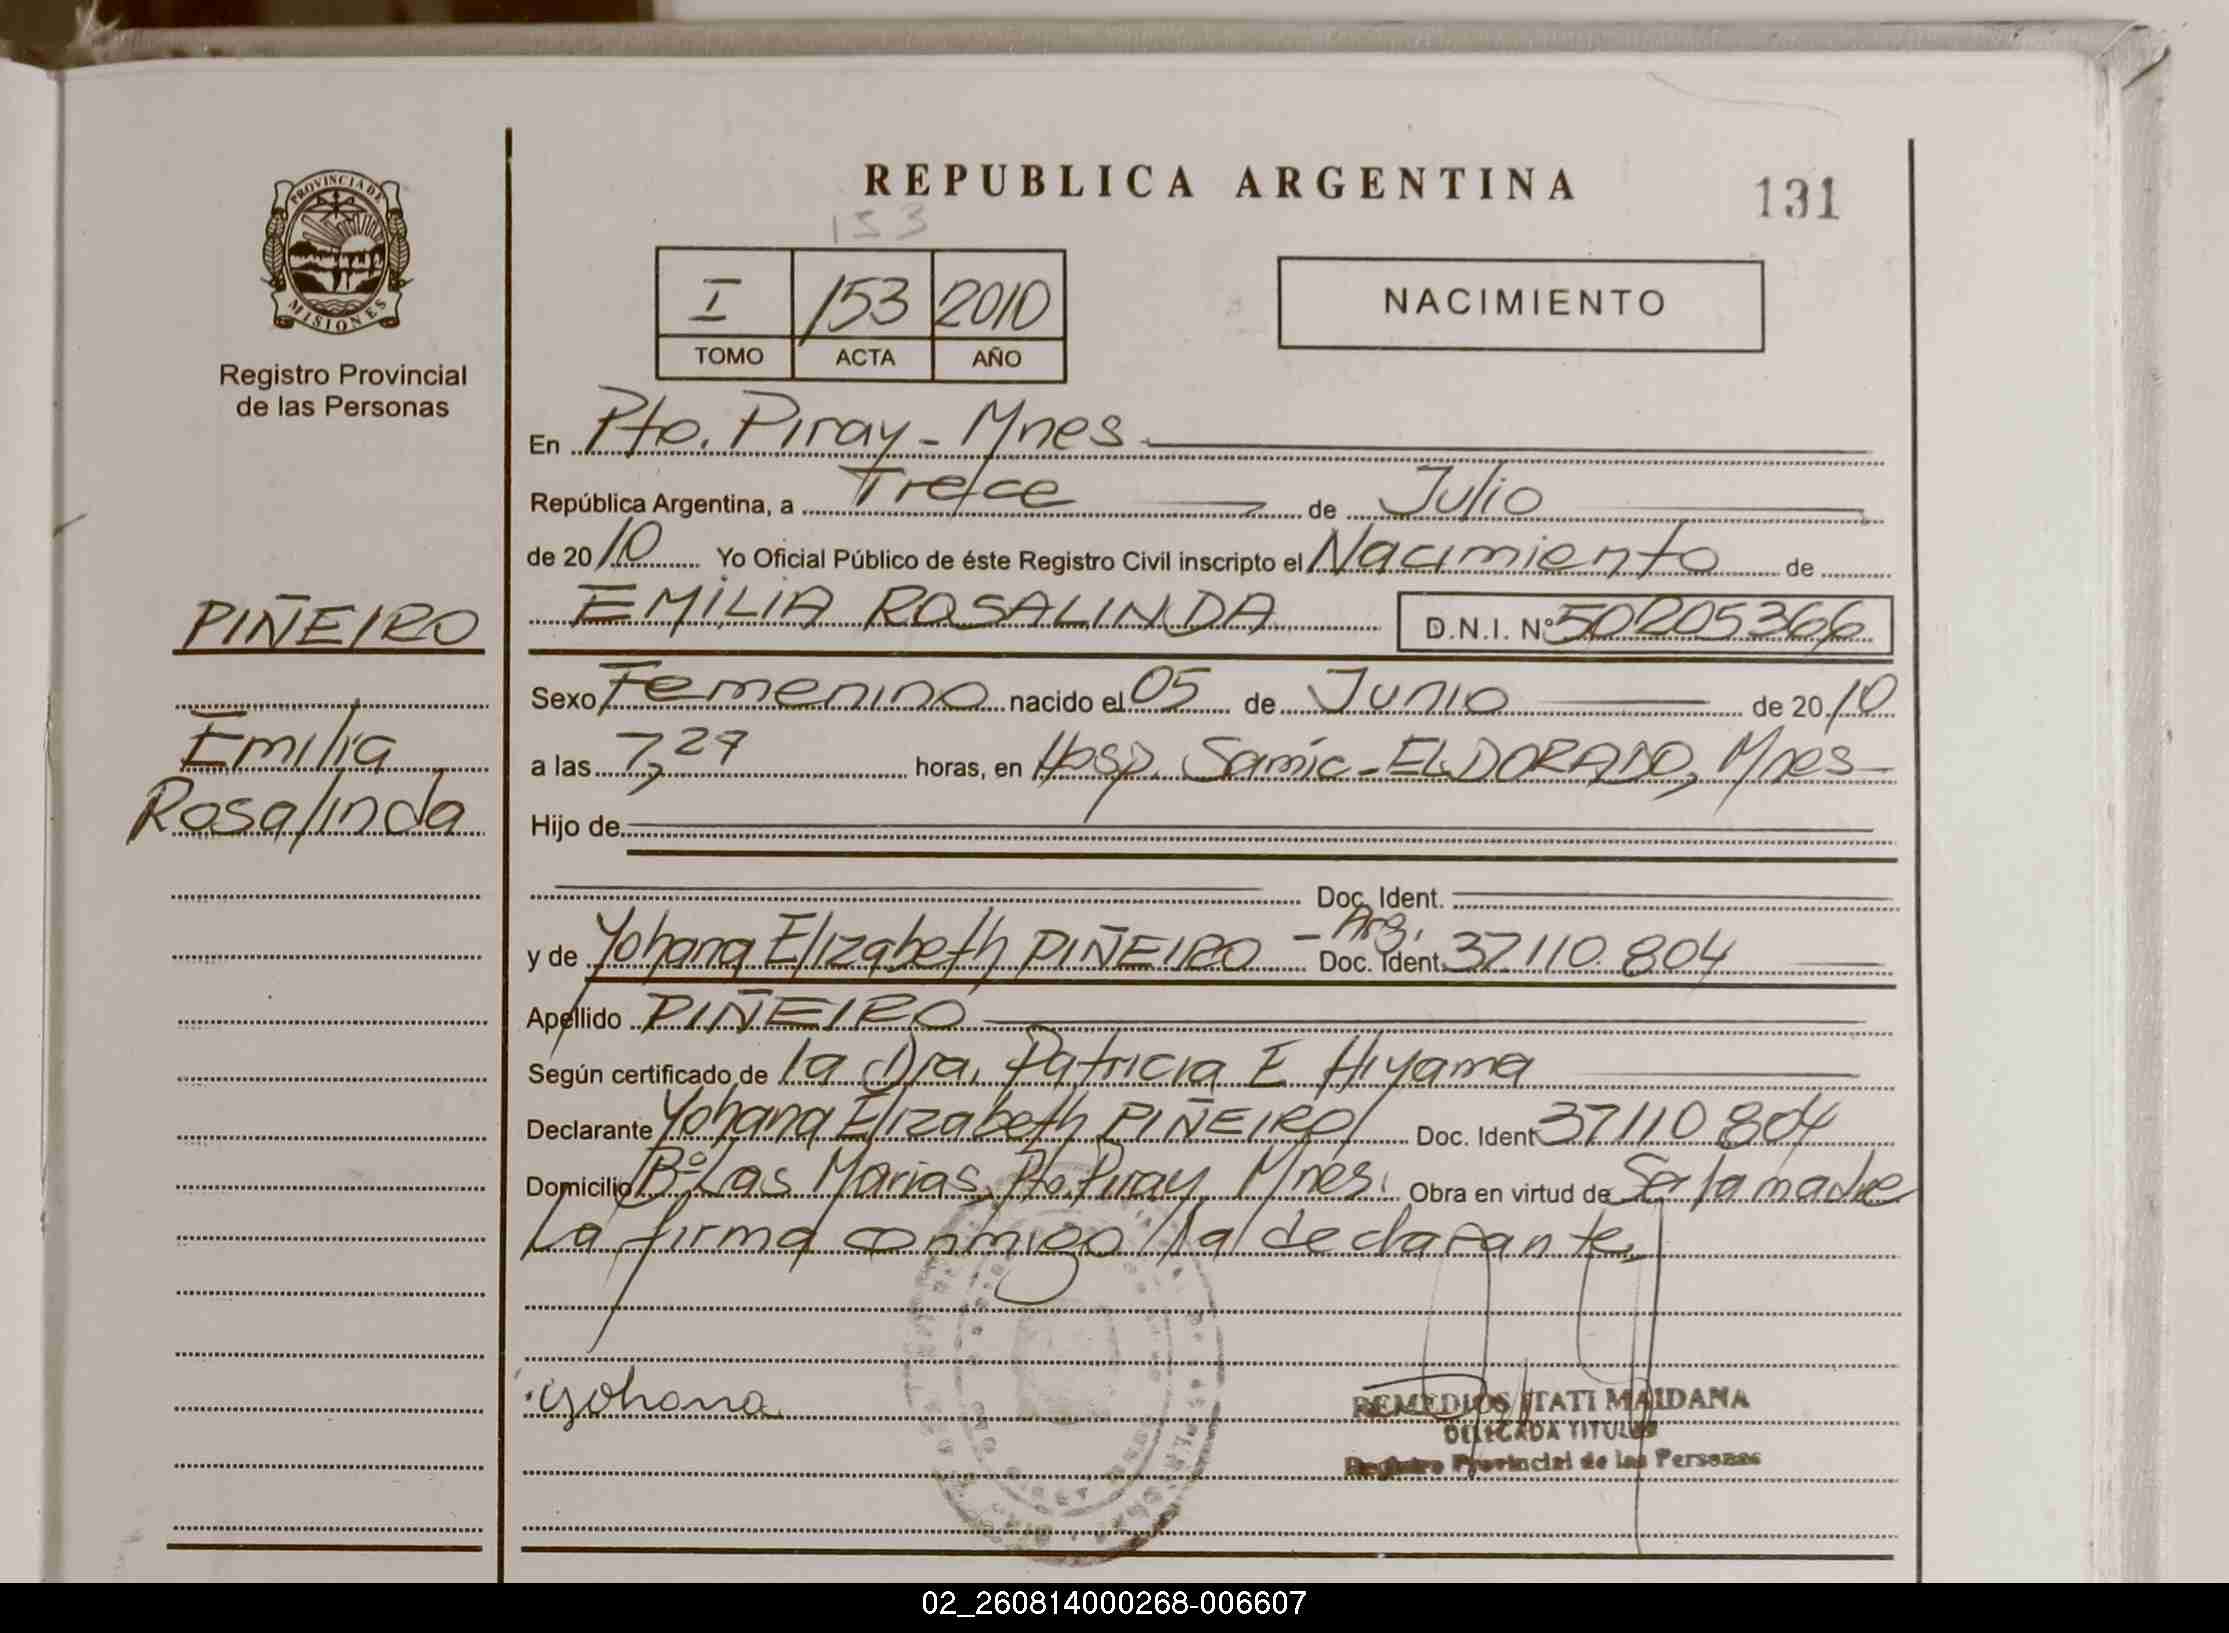 REPUBLICA ARGENTINA
131
153
PROVINCIA DE
MISIONES
Registro Provincial
de las Personas
I 153 2010
TOMO ACTA AÑO
NACIMIENTO
En Pto. Piray - Mnes
República Argentina, a Trece de Julio
de 2010 Yo Oficial Público de éste Registro Civil inscripto el Nacimiento de
PIÑEIRO
EMILIA ROSALINDA D.N.I. Nº 50205366
Sexo Femenino nacido el 05 de Junio de 2010
Emilia
a las 7,27 horas, en Hosp. Samic - ELDORADO, Mnes
Rosalinda
Hijo de
Doc. Ident.
y de Yohana Elizabeth PIÑEIRO - Arg. Doc. Ident. 37110.804
Apellido PIÑEIRO
Según certificado de la Dra. Patricia E Hiyama
Declarante Yohana Elizabeth PIÑEIRO Doc. Ident 37110804
Domicilio Bº Las Marias, Pto. Piray, Mnes. Obra en virtud de Ser la madre
La firma conmigo la declarante
yohana
REMEDIOS ITATI MAIDANA
DELEGADA TITULAR
Registro Provincial de las Personas
02_260814000268-006607